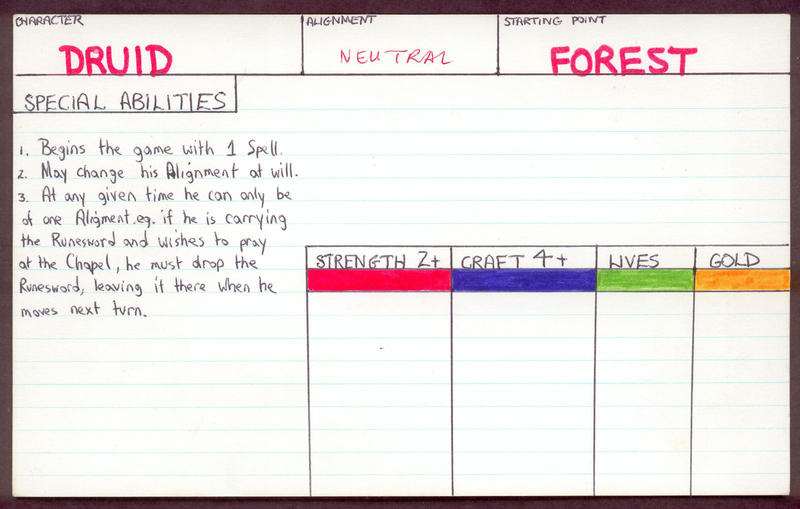 CHARACTER
DRUID
ALIGNMENT
NEUTRAL
STARTING POINT
FOREST
SPECIAL ABILITIES
1. Begins the game with 1 Spell.
2. May change his Alignment at will.
3. At any given time he can only be
of one Aligment.eg. if he is carrying
the Runesword and wishes to pray
at the Chapel, he must drop the
Runesword, leaving it there when he
moves next turn.
STRENGTH 2+
CRAFT 4+
LIVES
GOLD